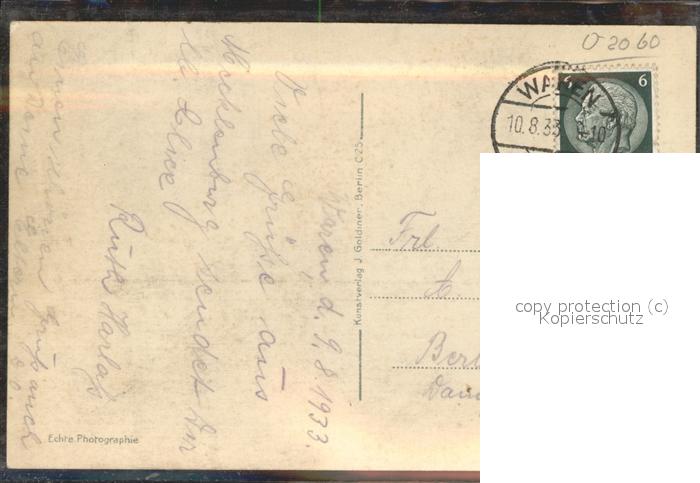 O 2060
6 6
WAREN
10.8.33
-10
Waren, d. 9.8.1933.
Viele Grüße aus
Mecklenburg sendet Dir
Ruth
Einen schönen Gruß auch
an Deine Eltern
Kunstverlag J. Goldiner, Berlin C 25
Frl.
Ber
Echte Photographie
copy protection (c)
Kopierschutz